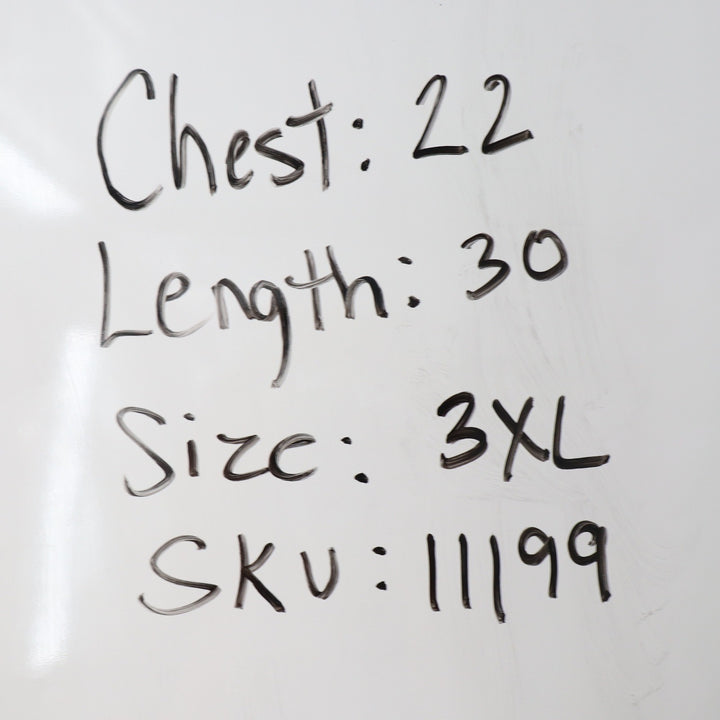 Chest: 22
Length: 30
Size: 3XL
SKU: 11199